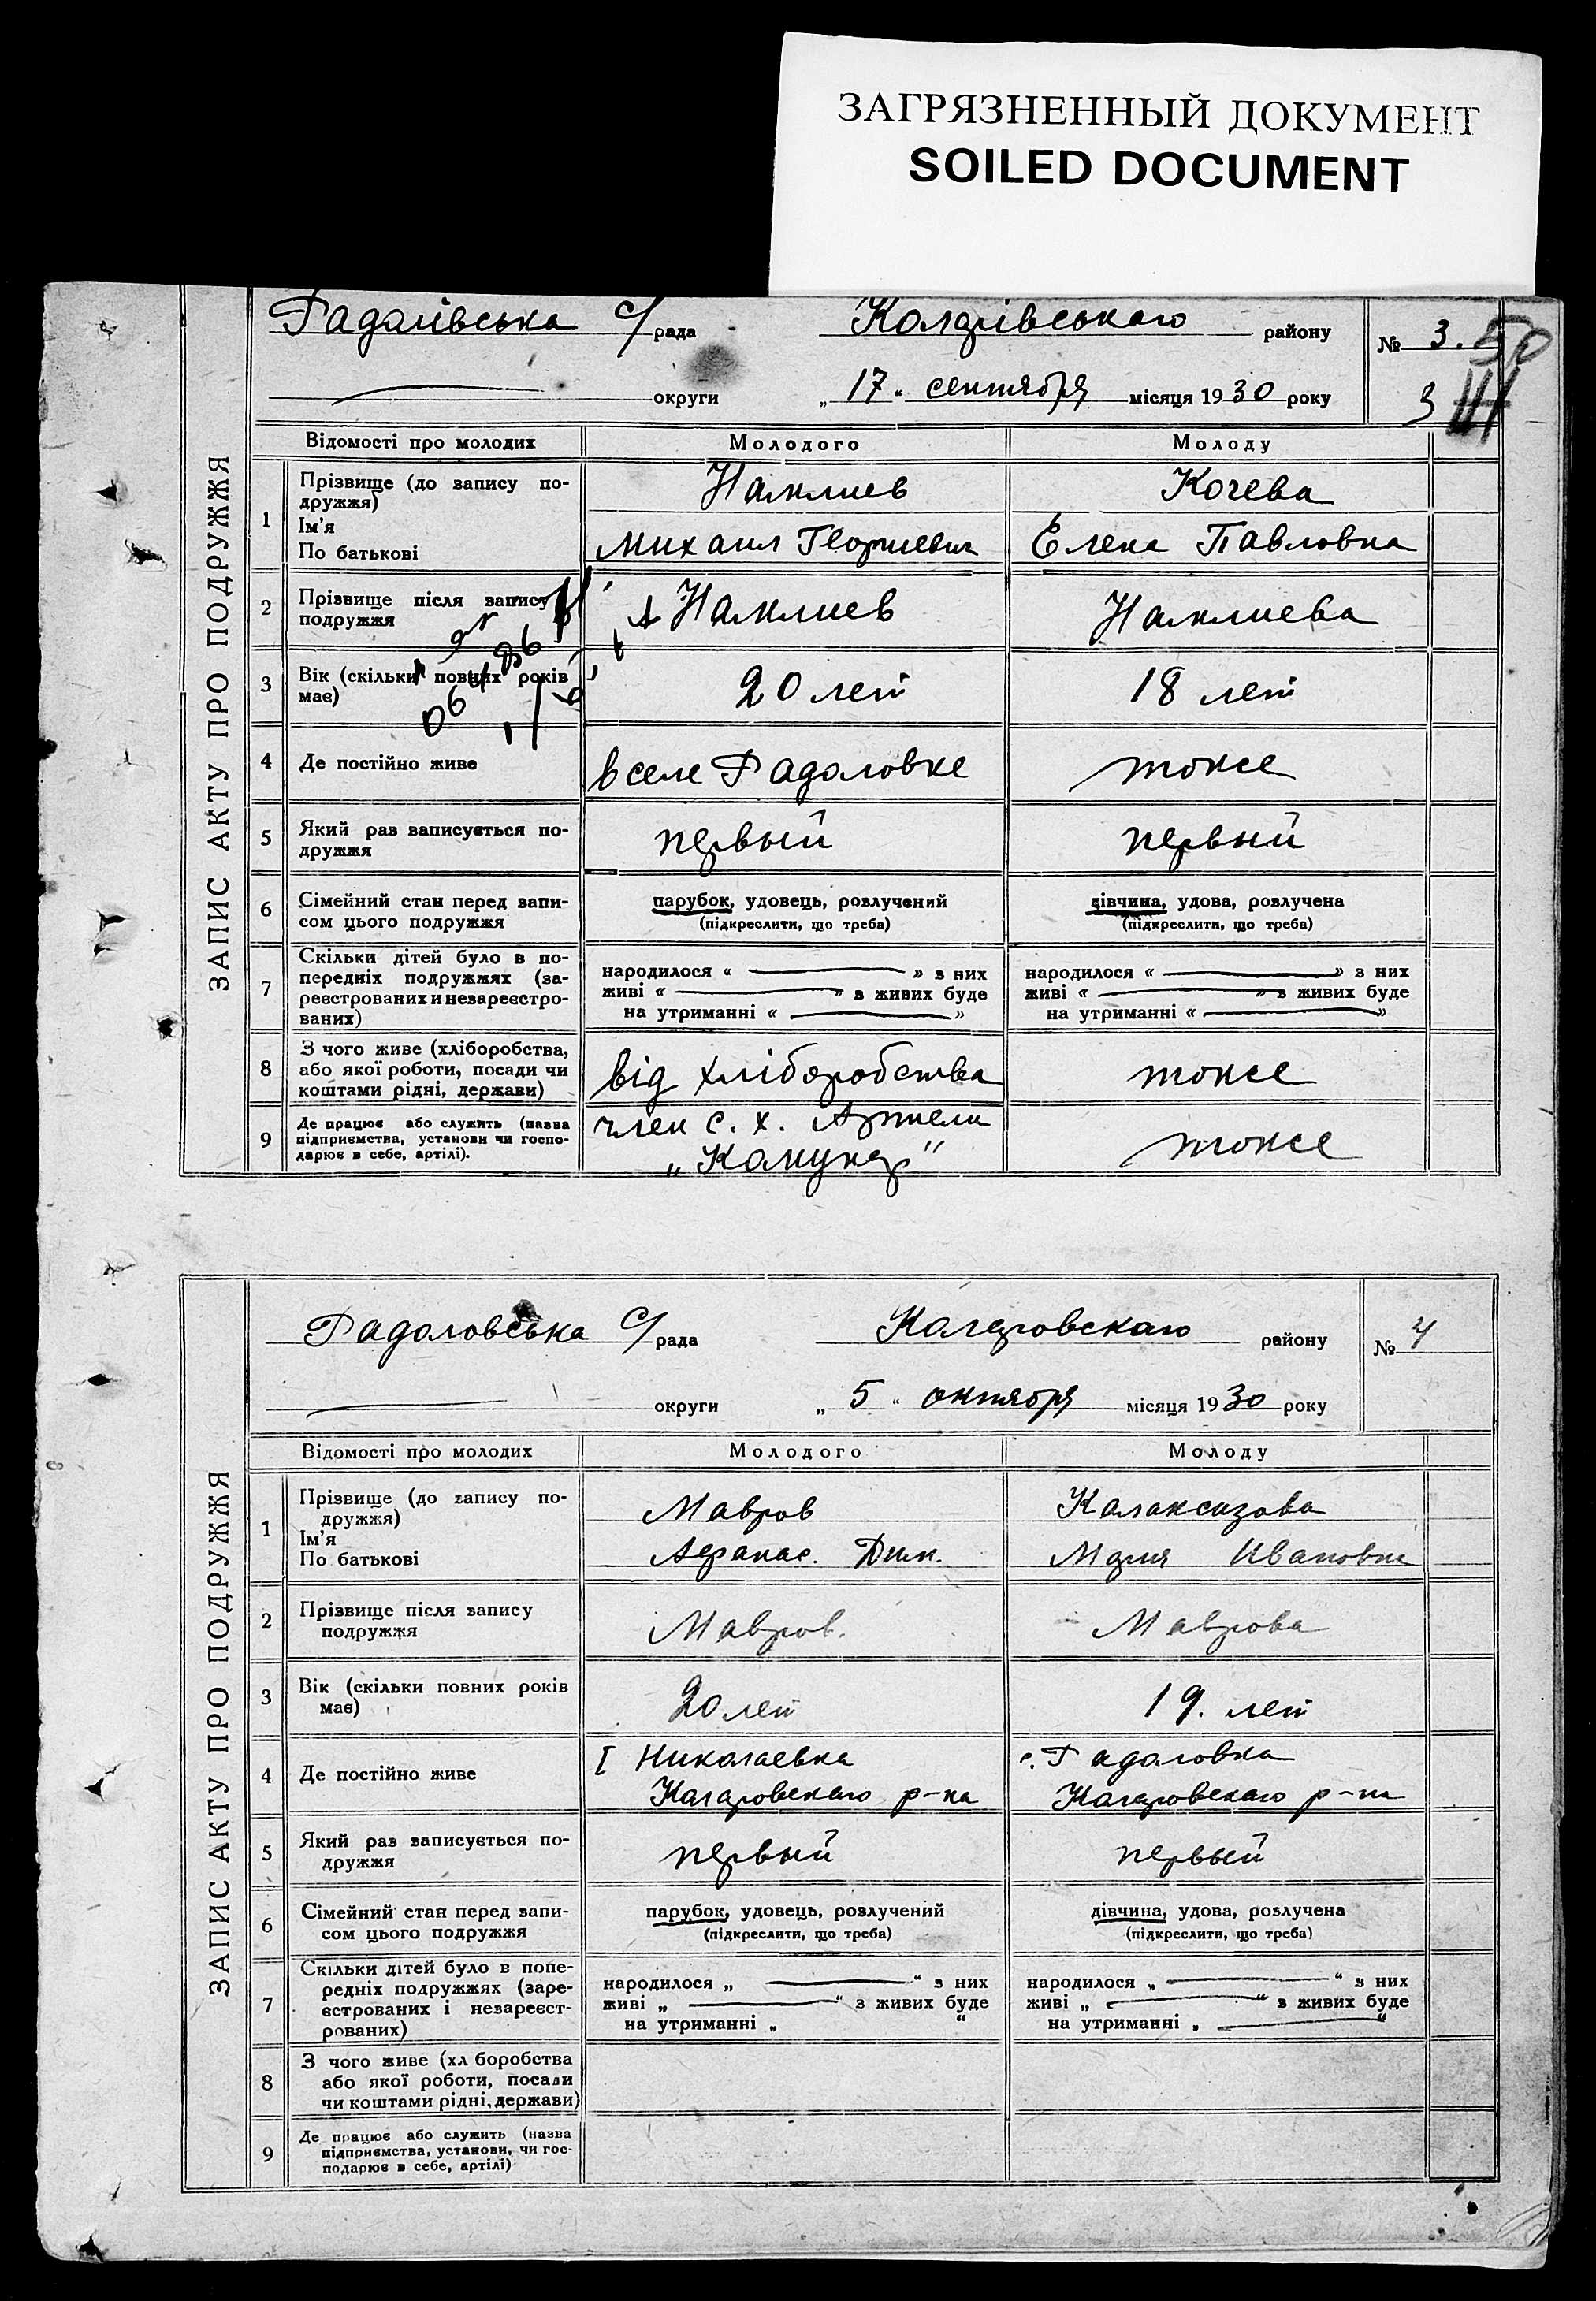 ЗАГРЯЗНЕННЫЙ ДОКУМЕНТ
SOILED DOCUMENT
ЗАПИС АКТУ ПРО ПОДРУЖЖЯ
с/рада района району № 3. 50
округи „17“ сентября місяця 1930 року 3
Відомості про молодих Молодого Молоду
1 Прізвище (до запису по-
дружжя)
Ім'я
По батькові
Кочева
Михаил Георгиевич Елена Павловна
2 Прізвище після запису
подружжя
3 Вік (скільки повних років
має)
20 лет 18 лет
4 Де постійно живе
в селе тоже
5 Який раз записується по-
дружжя
первый первый
6 Сімейний стан перед запи-
сом цього подружжя
парубок, удовець, розлучений дівчина, удова, розлучена
(підкреслити, що треба) (підкреслити, що треба)
7 Скільки дітей було в по-
передніх подружжях (за-
реєстрованих и незареєстро-
ваних)
народилося « » з них народилося « » з них
живі « » з живих буде живі « » з живих буде
на утриманні « » на утриманні « »
8 З чого живе (хліборобства,
або якої роботи, посади чи
коштами рідні, держави)
від хліборобства тоже
9 Де працює або служить (назва
підприємства, установи чи госпо-
дарює в себе, артілі).
член с. х. Артели тоже
„Комунар“
ЗАПИС АКТУ ПРО ПОДРУЖЖЯ
с/рада району № 4
округи „5“ октября місяця 1930 року
Відомості про молодих Молодого Молоду
1 Прізвище (до запису по-
дружжя)
Ім'я
По батькові
Мавров
Афанас. Дим. Мария Ивановна
2 Прізвище після запису
подружжя
Мавров. Маврова
3 Вік (скільки повних років
має)
20 лет 19. лет
4 Де постійно живе
I Николаевка
р-на р-на
5 Який раз записується по-
дружжя
первый первый
6 Сімейний стан перед запи-
сом цього подружжя
парубок, удовець, розлучений дівчина, удова, розлучена
(підкреслити, що треба) (підкреслити, що треба)
7 Скільки дітей було в попе-
редніх подружжях (заре-
єстрованих і незареєст-
рованих)
народилося „ “ з них народилося „ “ з них
живі „ “ з живих буде живі „ “ з живих буде
на утриманні „ “ на утриманні „ “
8 З чого живе (хл боробства
або якої роботи, посади
чи коштами рідні, держави)
9 Де працює або служить (назва
підприємства, установи, чи гос-
подарює в себе, артілі)